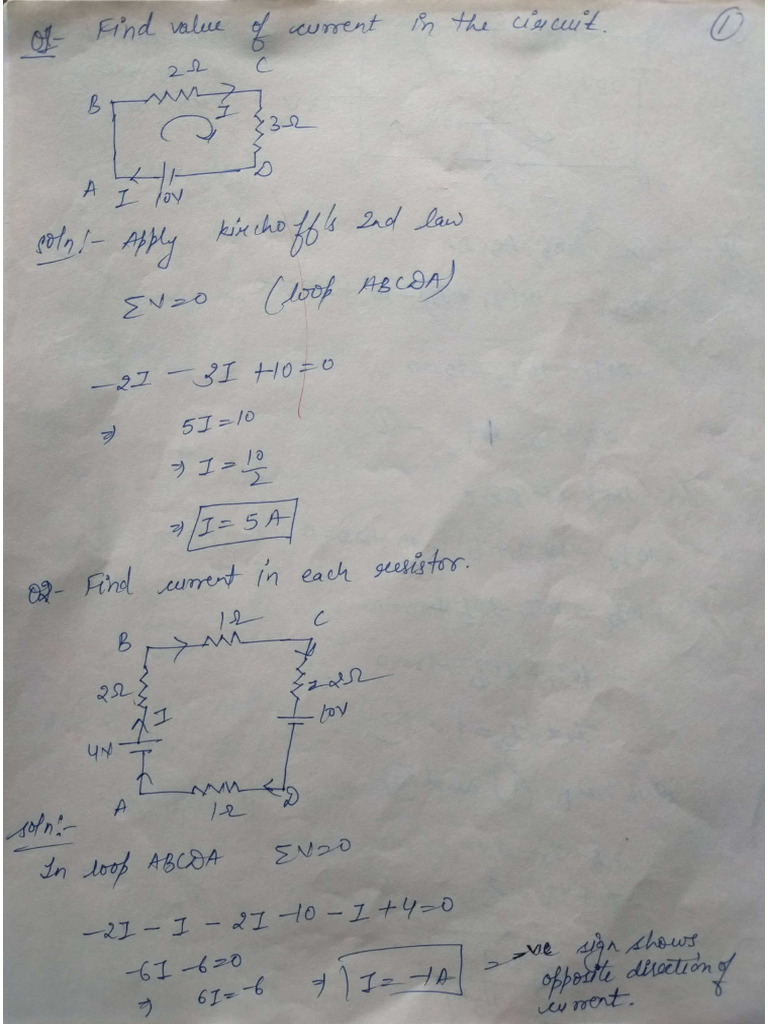 Q1- Find value of current in the circuit. ①
2Ω C
B I 3Ω
A I 10V D
Soln:- Apply kirchoff's 2nd law
ΣV=0 (loop ABCDA)
-2I - 3I +10=0
⇒ 5I=10
⇒ I = 10/2
⇒ I = 5A
Q2- Find current in each resistor.
1Ω C
B
2Ω 2Ω
I 10V
4V
A 1Ω D
soln:-
In loop ABCDA ΣV=0
-2I - I - 2I -10 - I +4=0
-6I -6=0
⇒ 6I=-6 ⇒ I = -1A = -ve sign shows
opposite direction of
current.